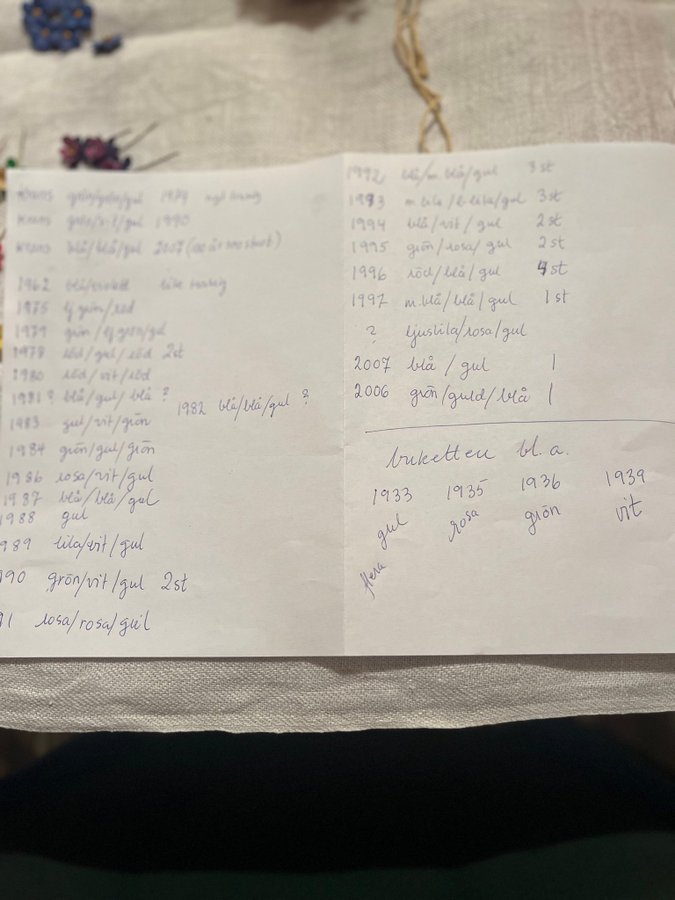 krans grön/grön/gul 1979
krans grön/ /gul 1990
krans blå/blå/gul 2007 (100 år
1962 blå/violett
1975 lj grön/röd
1979 grön/lj grön/gul
1978 röd/gul/röd 2st
1980 röd/vit/röd
1981? blå/gul/blå?
1982 blå/blå/gul?
1983 gul/vit/grön
1984 grön/gul/grön
1986 rosa/vit/gul
1987 blå/blå/gul
1988 gul
989 lila/vit/gul
90 grön/vit/gul 2st
91 rosa/rosa/gul
1992 blå/m.blå/gul 3st
1993 m lila/ lila/gul 3st
1994 blå/vit/gul 2st
1995 grön/rosa/gul 2st
1996 röd/blå/gul 4st
1997 m.blå/blå/gul 1st
? ljuslila/rosa/gul
2007 blå/gul 1
2006 grön/guld/blå 1
buketten bl.a.
1933 1935 1936 1939
gul rosa grön vit
flera